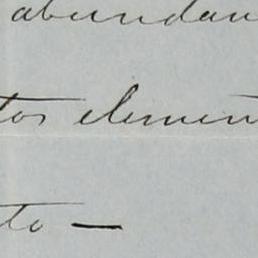 abundan
tos elemen
to —